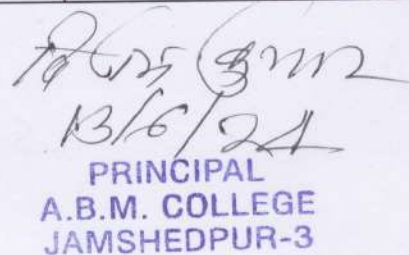 कुमार
13/6/24
PRINCIPAL
A.B.M. COLLEGE
JAMSHEDPUR-3